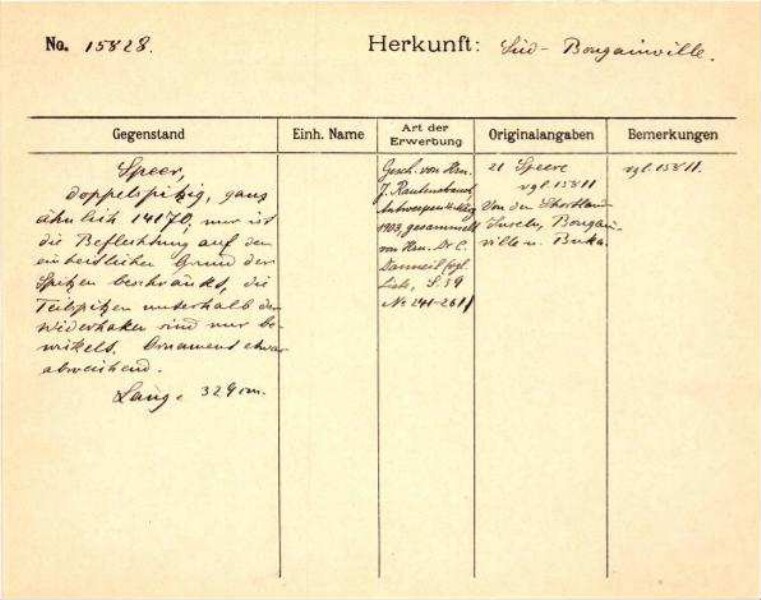 No. 15828.
Herkunft: Süd-Bougainville.
Gegenstand
Einh. Name
Art der Erwerbung
Originalangaben
Bemerkungen
Speer,
doppelspitzig, ganz
ähnlich 14170, nur ist
die Beflechtung auf den
einheitlichen Grund der
Spitzen beschränkt, die
Teilspitzen unterhalb der
Widerhaken sind nur be-
wickelt. Ornament etwas
abweichend.
Länge 329 cm.
Gesch. von Hrn.
J. Rautenstrauch
Antwerpen
1903, gesammelt
von Hrn. Dr C.
Danneil (vgl.
Liste, S. 39
No 241-261)
21 Speere
vgl. 15811
Von den Shortland-
Inseln, Bougain-
ville u. Buka.
vgl. 15811.